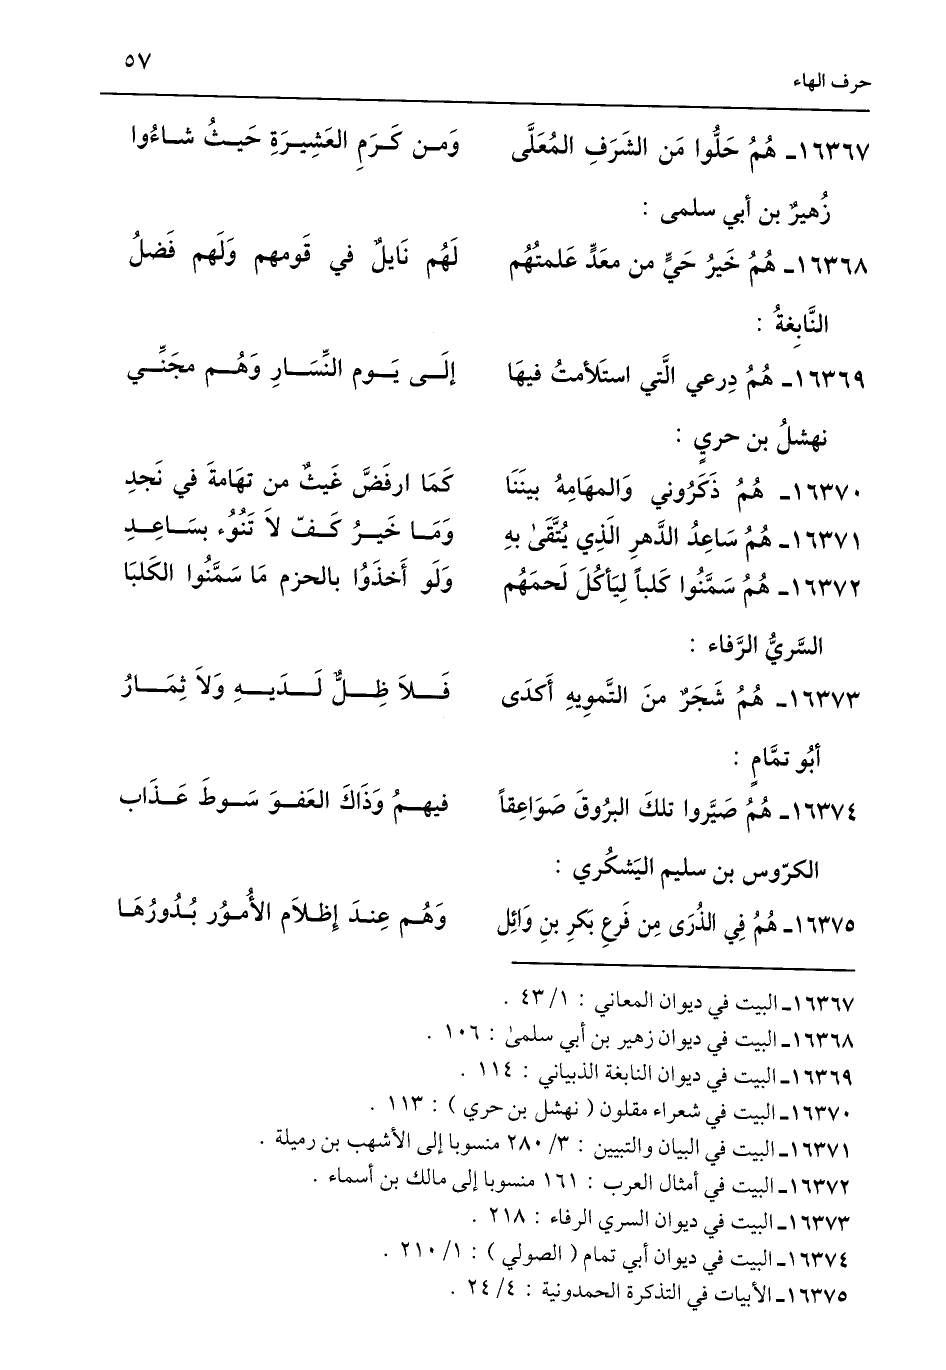 ٥٧
حرف الهاء
١٦٣٦٧ـ هُمُ حَلُّوا مَن الشَرَفِ المُعَلَّى وَمـن كَـرَمِ العَشِيـرَةِ حَيـثُ شـاءُوا
زُهيرُ بن أبي سلمى :
١٦٣٦٨ـ هُمُ خَيرُ حَيٍّ من معَدٍّ عَلمتُهُم لَهُم نَايلٌ في قَومهم وَلَهم فَضلُ
النَّابِغةُ :
١٦٣٦٩ـ هُمُ دِرعي الَّتي استَلأمتُ فيهَا إلَـى يَـوم النِّسَـارِ وَهُـم مجَنِّـي
نهشلُ بن حريٍ :
١٦٣٧٠ـ هُمُ ذَكَرُوني وَالمهَامِهُ بينَنَا كَمَا ارفَضَّ غَيثٌ من تهَامةَ في نَجدِ
١٦٣٧١ـ هُمُ سَاعِدُ الدَّهرِ الَّذِي يُتَّقَىٰ بهِ وَمَـا خَيـرُ كَـفّ لاَ تَنُوُء بسَـاعِـدِ
١٦٣٧٢ـ هُمُ سَمَّنُوا كَلباً لِيَأكُلَ لَحمَهُم وَلَو أخذَوُا بالحزم مَا سَمَّنُوا الكَلبَا
السَّريُّ الرَّفاء :
١٦٣٧٣ـ هُمُ شَجَرٌ منَ التَّمويهِ أكدَى فَـلاَ ظِـلٌّ لَـدَيـهِ وَلاَ ثِمَـارُ
أبُو تمَّامٍ :
١٦٣٧٤ـ هُمُ صَيَّروا تلكَ البرُوقَ صَوَاعِقاً فيهـمُ وَذَاكَ العَفـوَ سَـوطَ عَـذَاب
الكرّوس بن سليم اليَشكُري :
١٦٣٧٥ـ هُمُ فِي الذُرَى مِن فَرعِ بَكرِ بنِ وَائِل وَهُم عِندَ إظلاَم الأُمـوُر بُدُورُهَـا
١٦٣٦٧ـ البيت في ديوان المعاني : ١/ ٤٣ .
١٦٣٦٨ـ البيت في ديوان زهير بن أبي سلمىٰ : ١٠٦ .
١٦٣٦٩ـ البيت في ديوان النابغة الذبياني : ١١٤ .
١٦٣٧٠ـ البيت في شعراء مقلون ( نهشل بن حري ) : ١١٣ .
١٦٣٧١ـ البيت في البيان والتبيين : ٣/ ٢٨٠ منسوبا إلى الأشهب بن رميلة .
١٦٣٧٢ـ البيت في أمثال العرب : ١٦١ منسوبا إلى مالك بن أسماء .
١٦٣٧٣ـ البيت في ديوان السري الرفاء : ٢١٨ .
١٦٣٧٤ـ البيت في ديوان أبي تمام ( الصولي ) : ١/ ٢١٠ .
١٦٣٧٥ـ الأبيات في التذكرة الحمدونية : ٤/ ٢٤ .